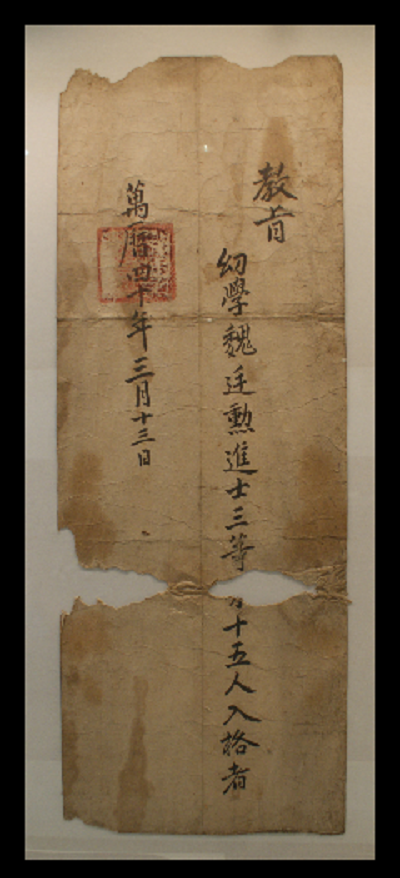 敎旨
幼學魏廷勳進士三等十五人入格者
萬曆四十年三月十三日